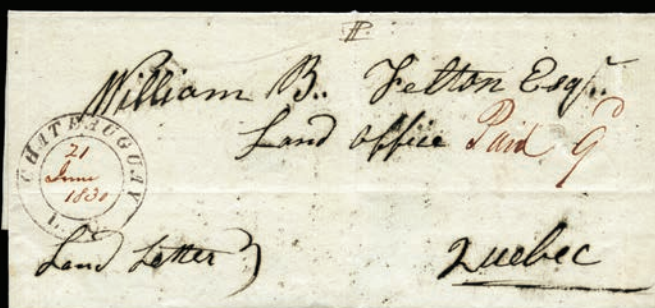 William B.. Felton Esqr..
Land office Paid 9d
CHATEAUGUAY
21
June
1830
Land Letter
Quebec